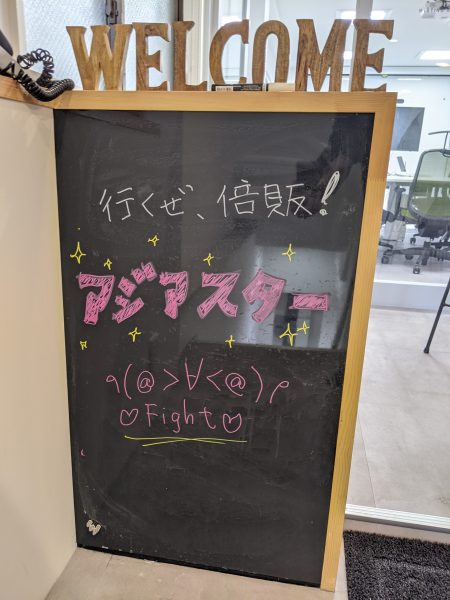 WELCOME
行くぜ、倍販!
アジアスター
٩(@>∀<@)۶
♡Fight♡